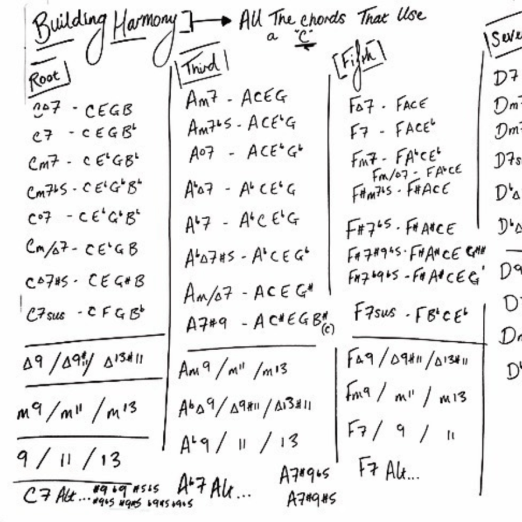 Building Harmony → All The chords That Use
a "C"
Root
C∆7 - C E G B
C7 - C E G Bᵇ
Cm7 - C Eᵇ G Bᵇ
Cm7ᵇ5 - C Eᵇ Gᵇ Bᵇ
C°7 - C Eᵇ Gᵇ Bᵇ
Cm/∆7 - C Eᵇ G B
C∆7#5 - C E G# B
C7sus - C F G Bᵇ
∆9 / ∆9#11 / ∆13#11
m9 / m11 / m13
9 / 11 / 13
C7 Alt...
Third
Am7 - A C E G
Am7ᵇ5 - A C Eᵇ G
A°7 - A C Eᵇ Gᵇ
Aᵇ∆7 - Aᵇ C Eᵇ G
Aᵇ7 - Aᵇ C Eᵇ G
Aᵇ∆7#5 - Aᵇ C E Gᵇ
Am/∆7 - A C E G#
A7#9 - A C# E G B# (C)
Am9 / m11 / m13
Aᵇ∆9 / ∆9#11 / ∆13#11
Aᵇ9 / 11 / 13
Aᵇ7 Alt... A7#9ᵇ5
A7#9#5
Fifth
F∆7 - F A C E
F7 - F A C Eᵇ
Fm7 - F Aᵇ C Eᵇ
Fm/∆7 - F Aᵇ C E
F#m7ᵇ5 - F# A C E
F#7ᵇ5 - F# A# C E
F#7#9ᵇ5 - F# A# C E G##
F#7ᵇ9ᵇ5 - F# A# C E G
F7sus - F Bᵇ C Eᵇ
F∆9 / ∆9#11 / ∆13#11
Fm9 / m11 / m13
F7 / 9 / 11
F7 Alt...
Seve
D7
Dm
Dm
D7s
Dᵇ∆
Dᵇ∆
D9
D
Dm
Dᵇ